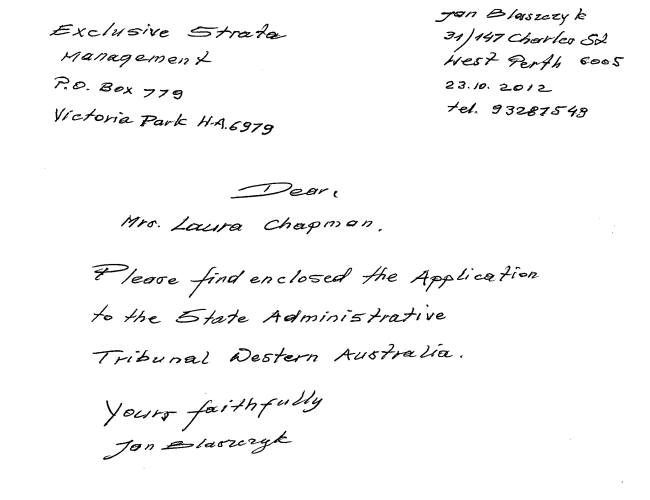 Exclusive Strata
Management
P.O. Box 779
Victoria Park W.A. 6979
Jan Blaszczyk
31/147 Charles St
West Perth 6005
23.10.2012
tel. 93287549
Dear,
Mrs. Laura Chapman.
Please find enclosed the Application
to the State Administrative
Tribunal Western Australia.
Yours faithfully
Jan Blaszczyk